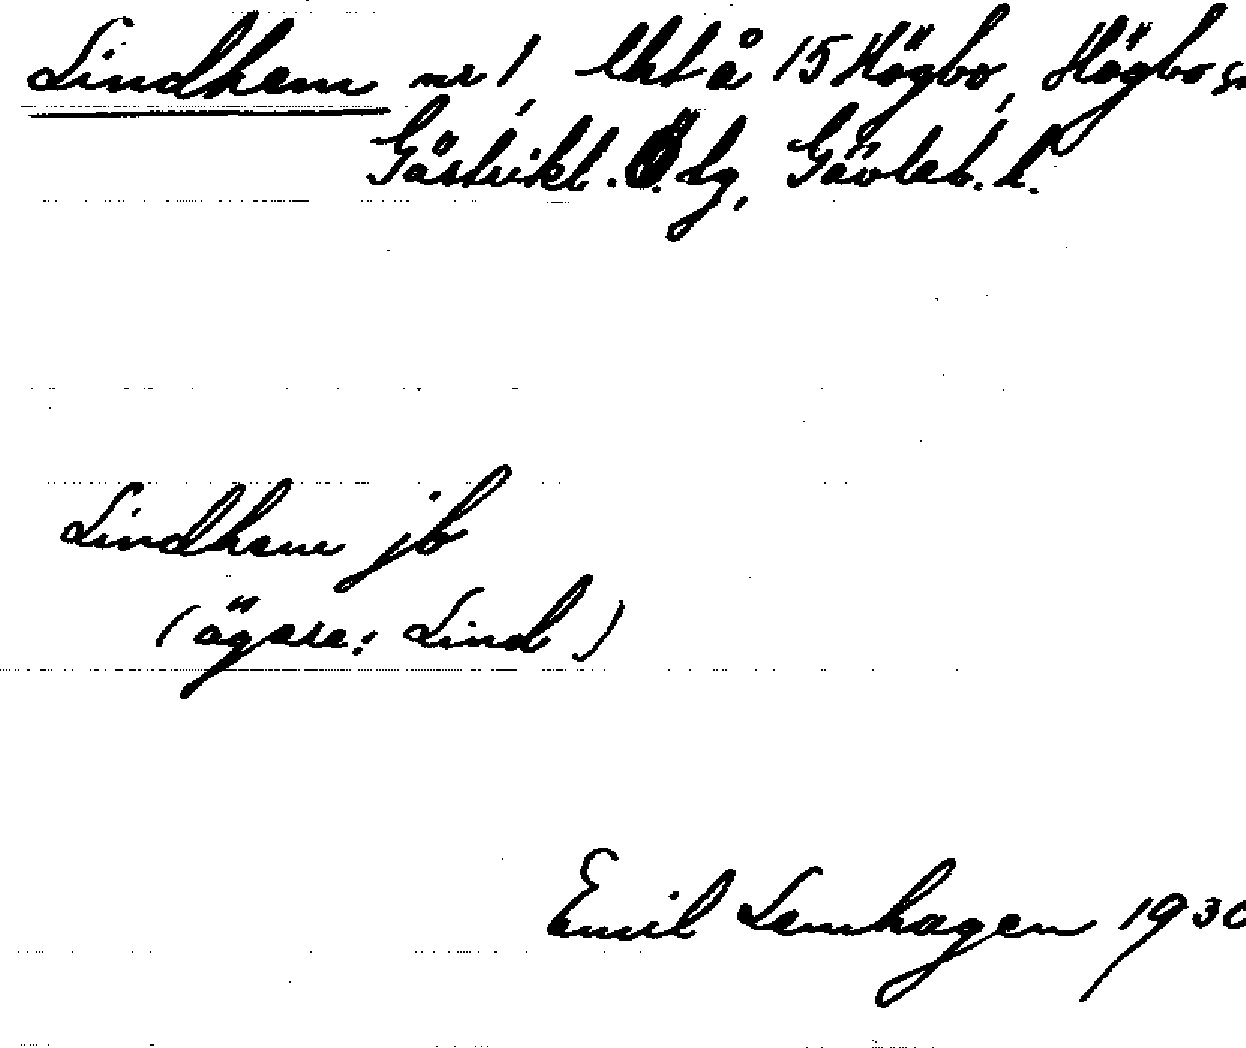 Lindhem nr 1, lht å 15 Högbo, Högbo sn
Gästrikl. Ö. tg, Gävleb. l.
Lindhem jb
(ägare: Lind)
Emil Lemhagen 1930